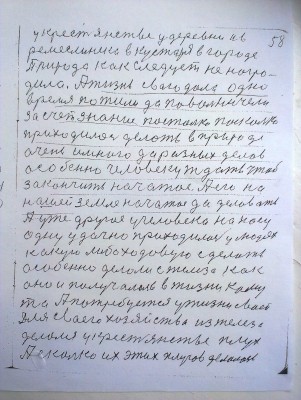 58
укрестянстве удеревни ив
ремесленика вкустаря вгороде
Природа как следует не наго-
дила. Ажизнь сваго дала одно
время потом да поволнечела
За счет знание поставка
приходился делоть вприроде
очень и много да разных делов
особенно человеку ждать чтоб
закончить начатое. Аего на
нашей земле начатое да деловать
Ауже другое учеловека на носу
одну удачно приходилось улюдях
какую любо ходовую сделать
особенно делоли сжизо как
оно и получалось вжизни каму
та Апотребуется ужизни своей
Для сваего хозяйства изжелезо
делоли укрестянстве плуг
Асколко их этих плугов делолось